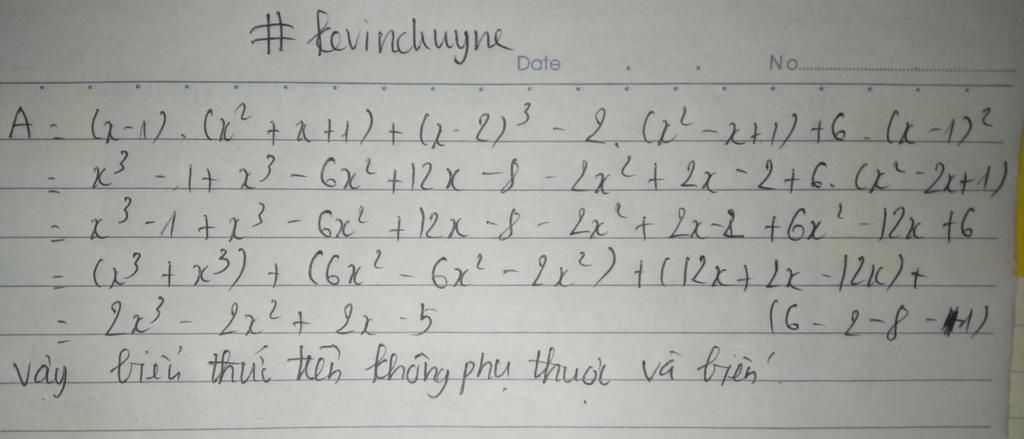 # kevinchuyne
Date No
A = (x-1).(x² + x + 1) + (x-2)³ - 2.(x² - x + 1) + 6.(x-1)²
= x³ - 1 + x³ - 6x² + 12x - 8 - 2x² + 2x - 2 + 6.(x² - 2x + 1)
= x³ - 1 + x³ - 6x² + 12x - 8 - 2x² + 2x - 2 + 6x² - 12x + 6
= (x³ + x³) + (6x² - 6x² - 2x²) + (12x + 2x - 12x) +
(6 - 2 - 8 - 1)
= 2x³ - 2x² + 2x - 5
vậy biểu thức trên không phụ thuộc và biến